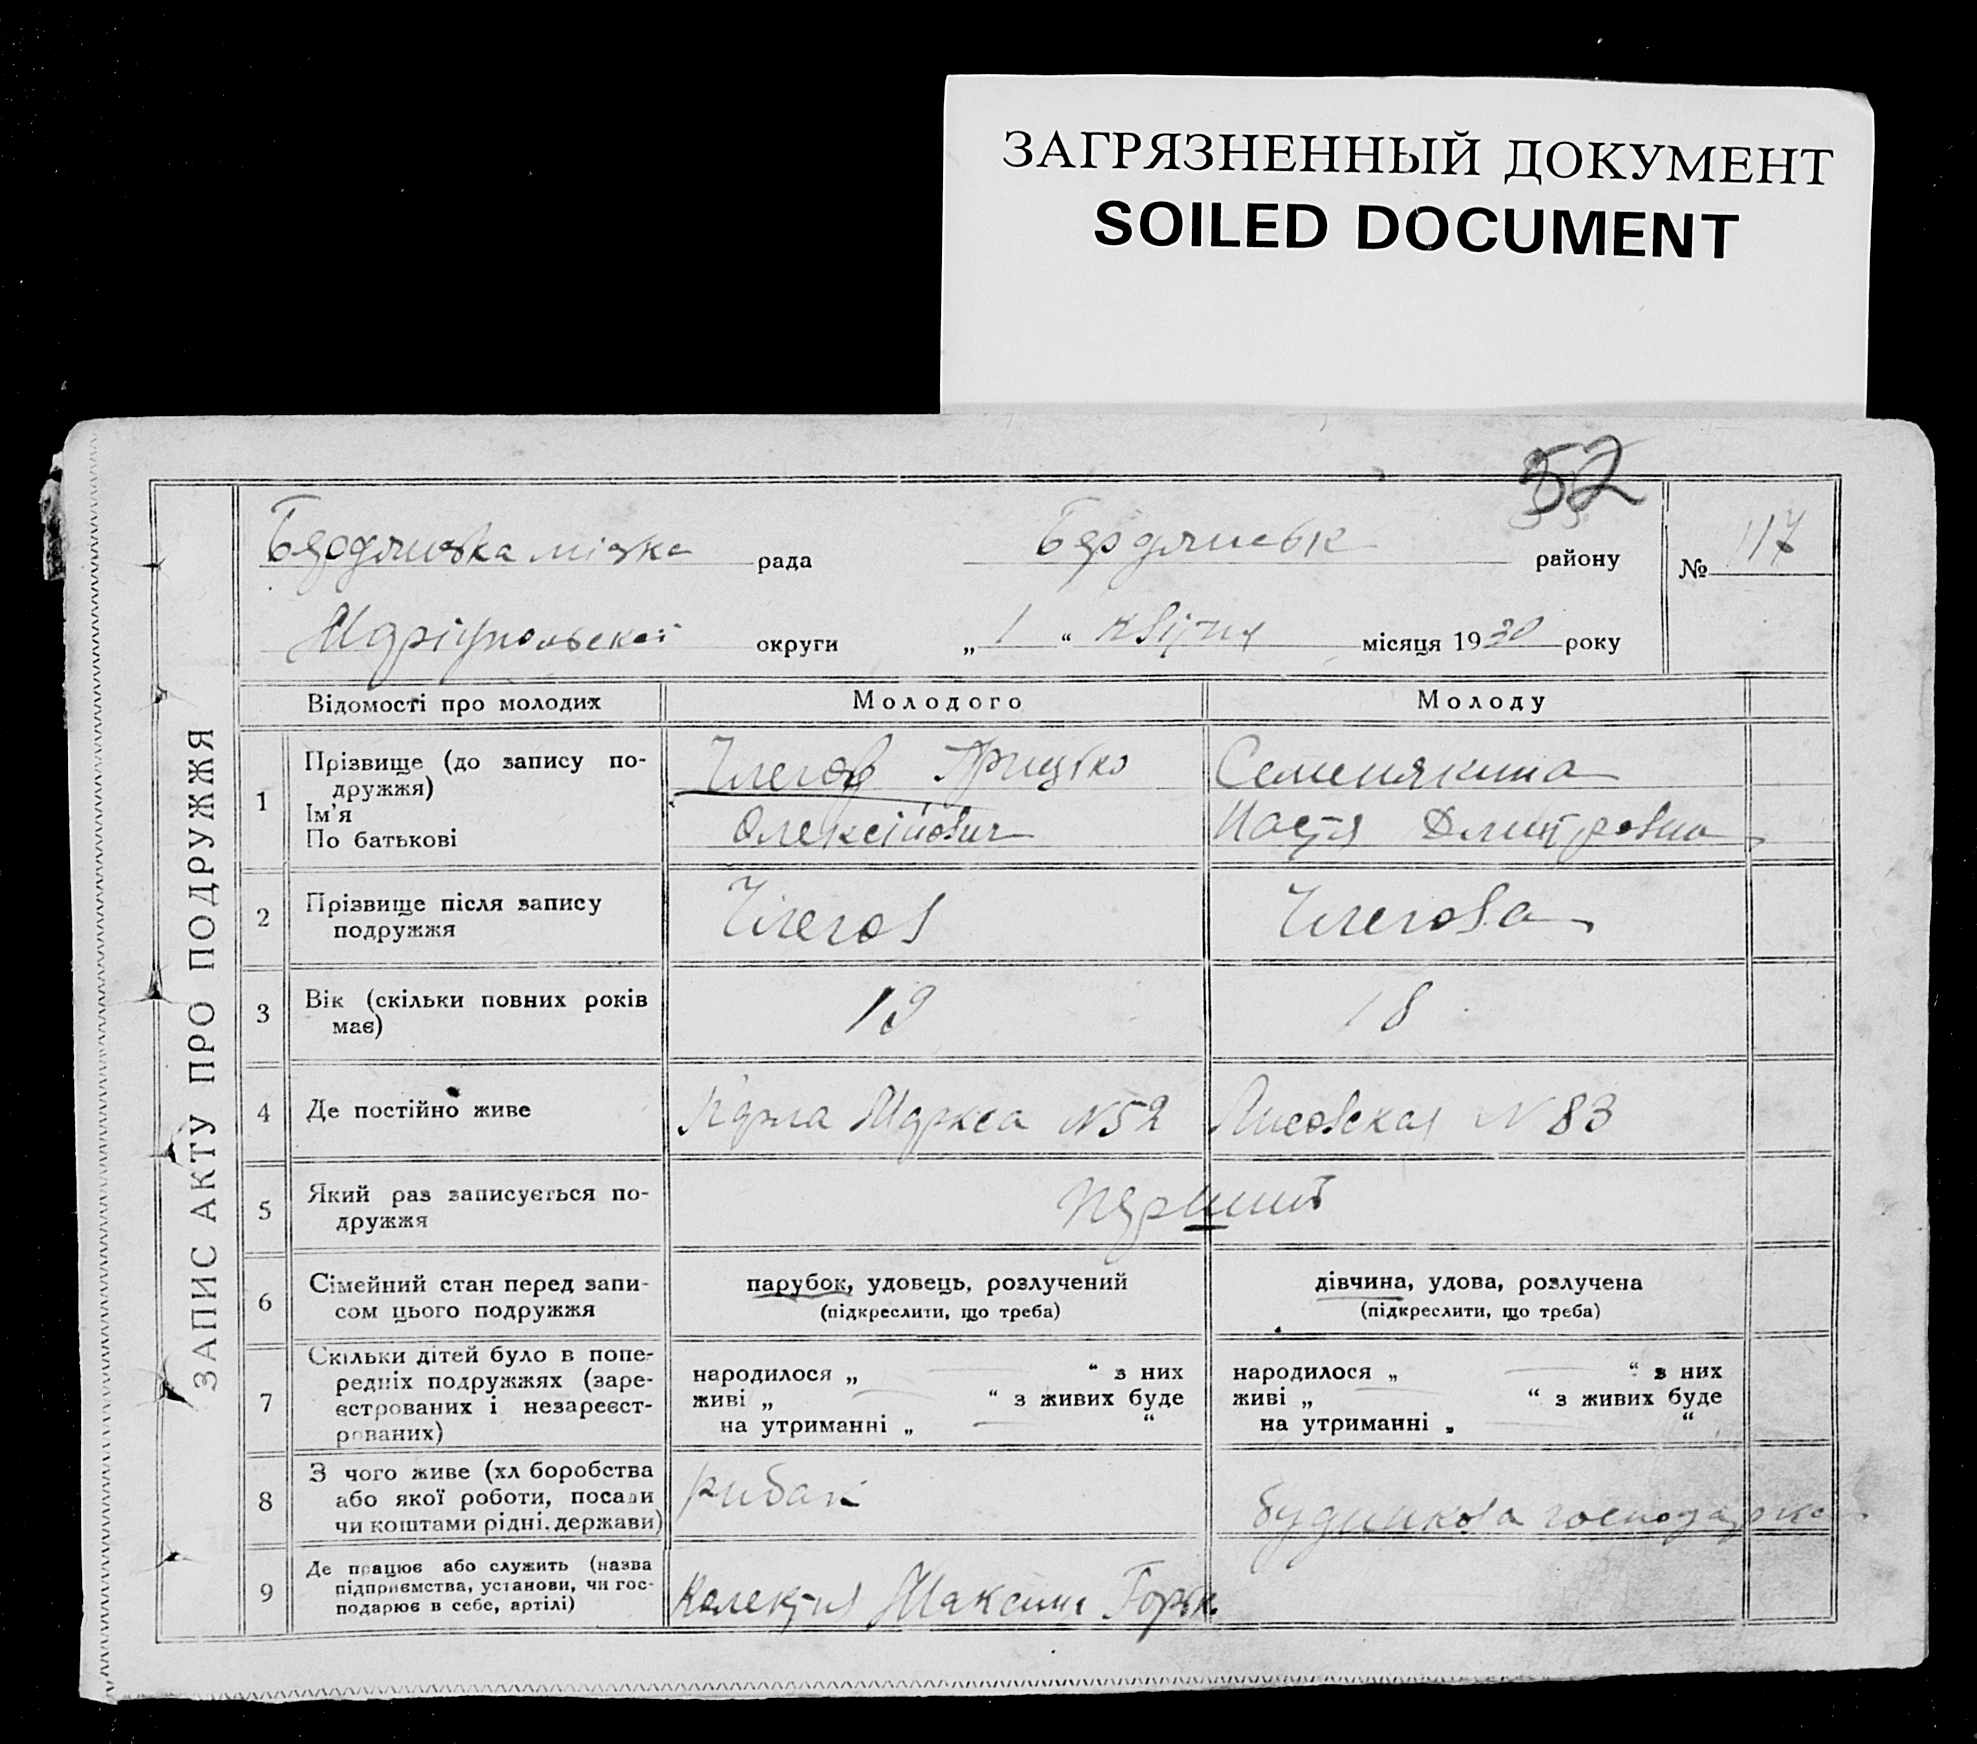 ЗАГРЯЗНЕННЫЙ ДОКУМЕНТ
SOILED DOCUMENT
52
Бердянська міська рада Бердянськ району № 117
Маріупольскої округи „ 1 “ квітня місяця 1930 року
ЗАПИС АКТУ ПРО ПОДРУЖЖЯ
Відомості про молодих Молодого Молоду
1 Прізвище (до запису по-
дружжя)
Ім'я
По батькові
Члегов Грицько
Олексійович
Семенякина
Настя Дмитровна
2 Прізвище після запису
подружжя
Члегов Члегова
3 Вік (скільки повних років
має)
19 18
4 Де постійно живе Карла Маркса N 52 Лисовская N 83
5 Який раз записується по-
дружжя
перший
6 Сімейний стан перед запи-
сом цього подружжя
парубок, удовець, розлучений
(підкреслити, що треба)
дівчина, удова, розлучена
(підкреслити, що треба)
7 Скільки дітей було в попе-
редніх подружжях (заре-
єстрованих і незареєст-
рованих)
народилося „ — “ з них
живі „ — “ з живих буде
на утриманні „ — “
народилося „ — “ з них
живі „ — “ з живих буде
на утриманні „ — “
8 З чого живе (хл боробства
або якої роботи, посади
чи коштами рідні, держави)
рибак
будинкова господарка
9 Де працює або служить (назва
підприємства, установи, чи гос-
подарює в себе, артілі)
Максима Горьк.